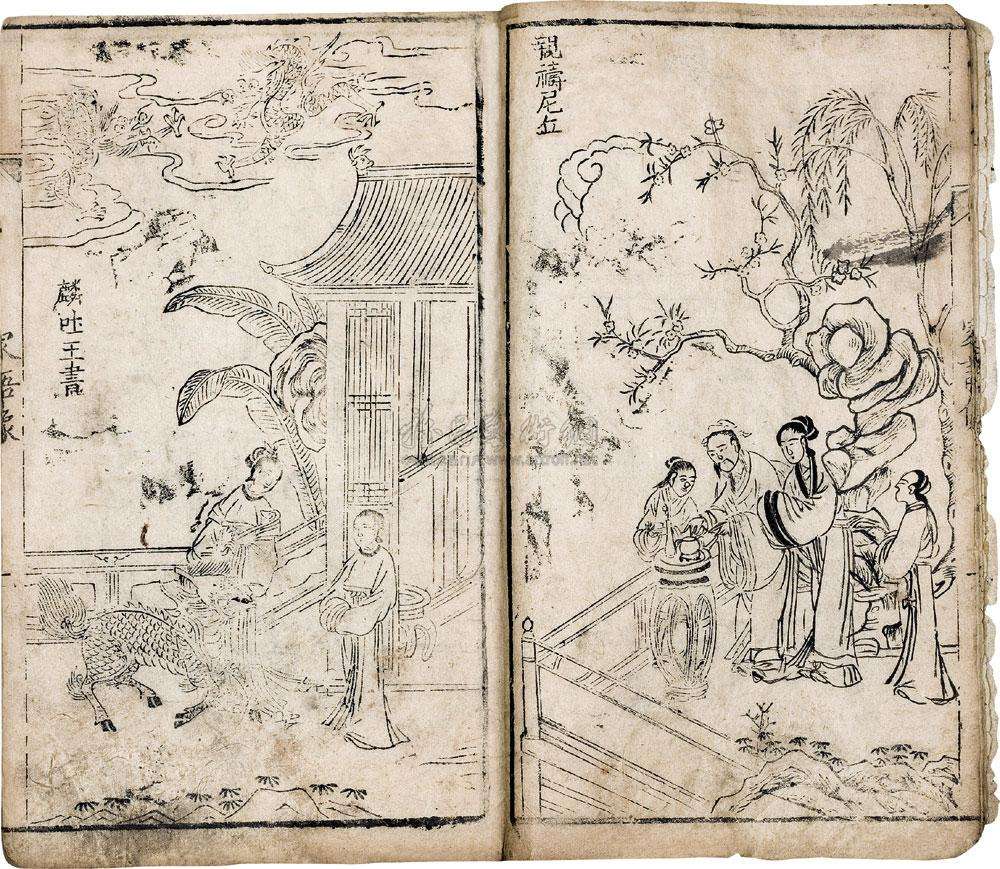 親禱尼丘
麟吐玉書
家語像